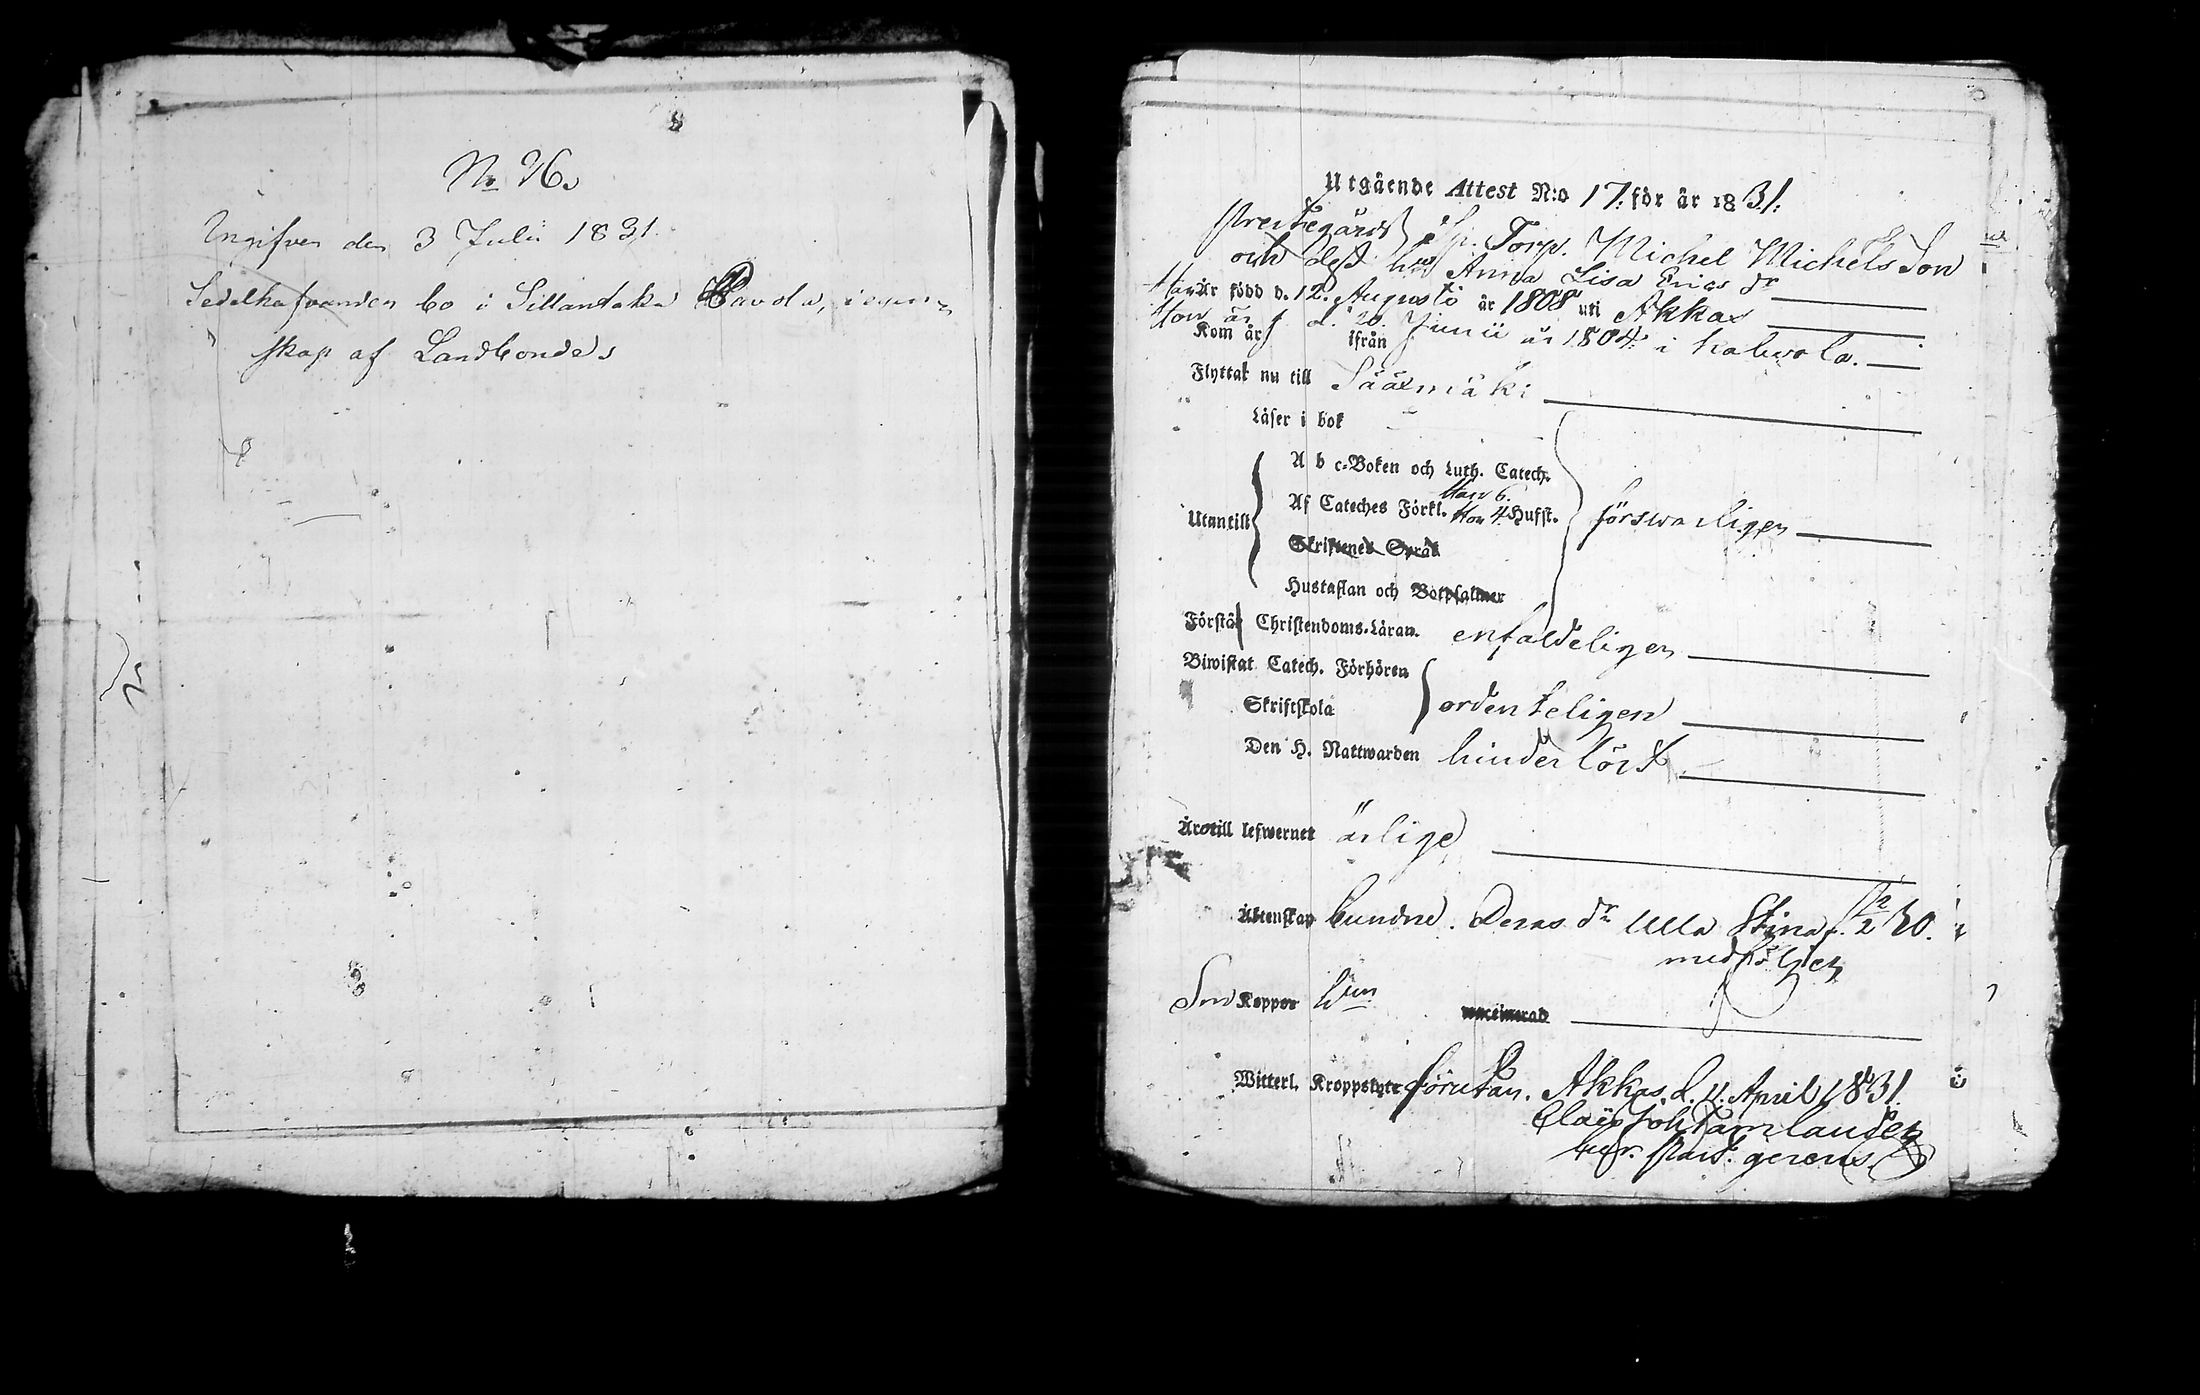 No 26.
Ingifven den 3 Julii 1831.
Sedelhafvanden bo i Sillantaka Uavola, i egen-
skap af Landbonde
Utgående Attest N:o 17. för år 1831.
Prestegårds Torp. Michel Michels Son
och dess hu Anna Lisa Erics dr
Han Är född d. 12. Augusti år 1808 uti Akkas
Hon är f. d. 20. Junii år 1804. i Kalwola.
Kom år ifrån
Flyttat nu till Sääxmäki
Läser i bok
A b c-Boken och Luth. Catech.
Af Cateches Förkl. Han 6. Hon 4. Hufst.
Utantill försvarligen
Skriftenes Språk
Hustaflan och Botpsalmer
Förstå Christendoms-Läran. enfaldeligen
Biwistat Catech. Förhören
Skriftskola ordenteligen
Den H. Nattwarden hinderlöst
Äro till lefwernet ärlige
Äktenskap bundne. Deras dr Ulla Stina f. 12/2 30.
medföljer
Koppor
vaccinerad
Witterl. Kroppslyte förutan. Akkas d. 11. April 1831.
Claës Joh Tamlander
Past. gerens.